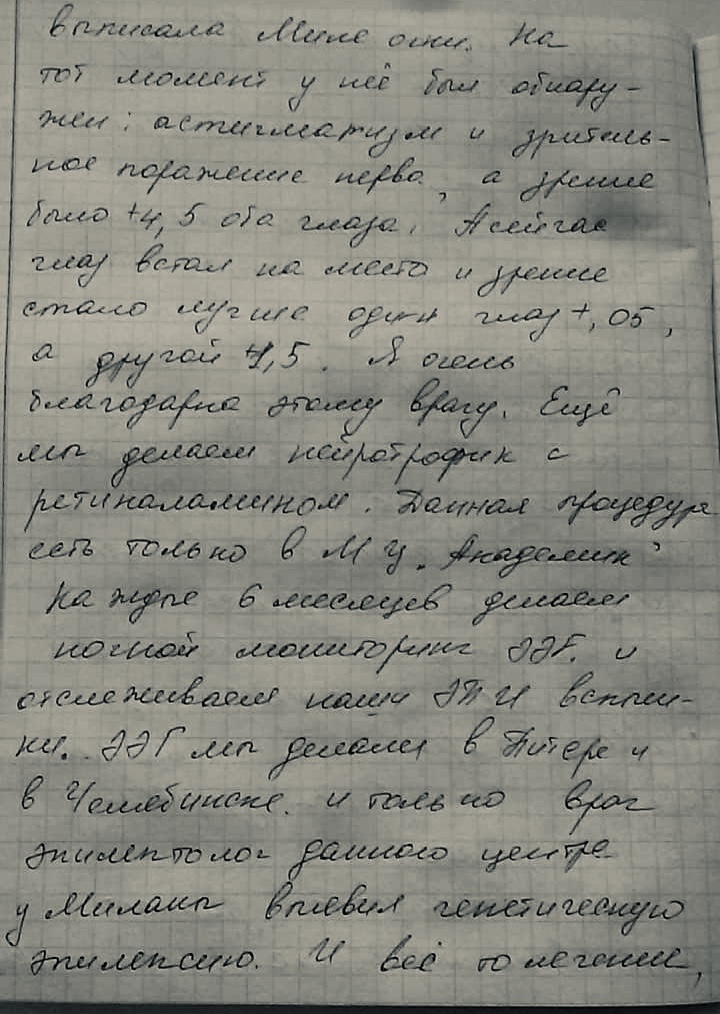 выписала Миле очки. На
тот момент у неё был обнару-
жен: астигматизм и зритель-
ное поражение нерва, а зрение
было +4,5 оба глаза. А сейчас
глаз встал на место и зрение
стало лучше один глаз +,05,
а другой +1,5. Я очень
благодарна этому врачу. Ещё
мы делаем нейротрофик с
ретиналамином. Данная процедура
есть только в МЦ "Академик"
Каждые 6 месяцев делаем
ночной мониторинг ЭЭГ. и
отслеживаем наши ЭПИ вспыш-
ки. ЭЭГ мы делали в Питере и
в Челябинске. и только врач
эпилептолог данного центра
у Миланы выевил генетическую
эпилепсию. И всё то лечение,